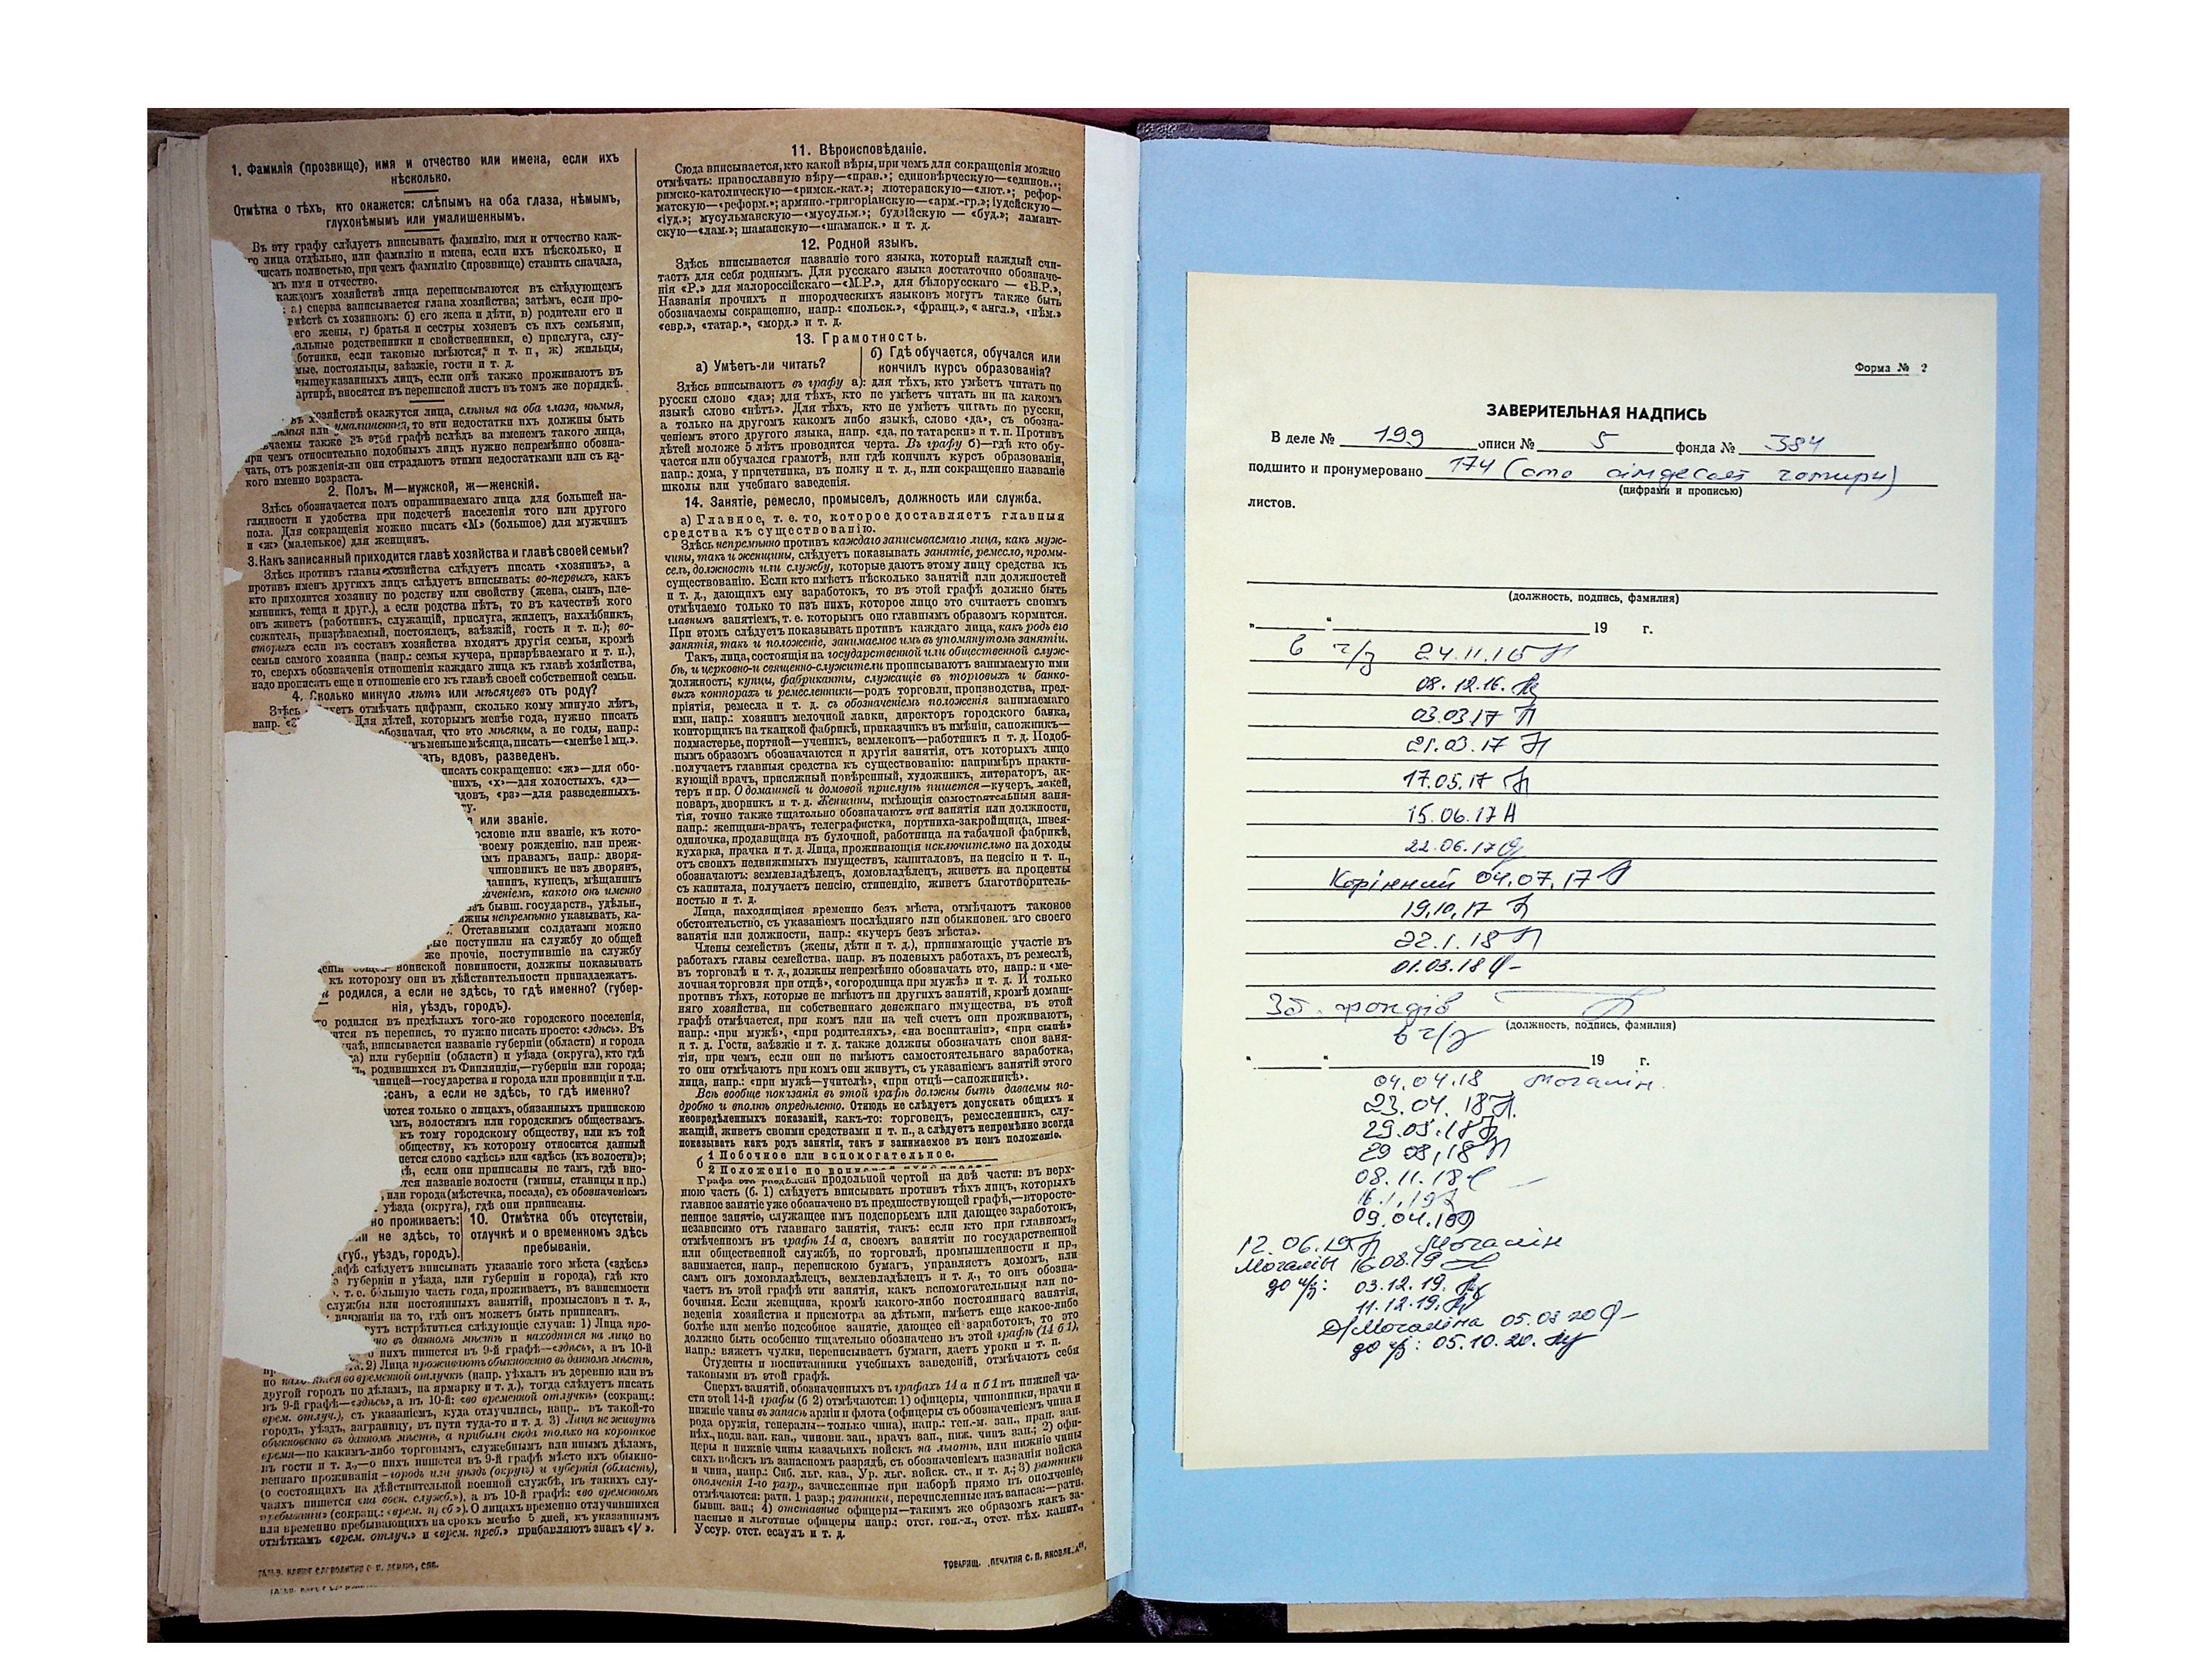 1. Фамилія (прозвище), имя и отчество или имена, если ихъ
нѣсколько.
Отмѣтка о тѣхъ, кто окажется: слѣпымъ на оба глаза, нѣмымъ,
глухонѣмымъ или умалишеннымъ.
Въ эту графу слѣдуетъ вписывать фамилію, имя и отчество каж-
лица отдѣльно, или фамилію и имена, если ихъ нѣсколько, и
писать полностью, при чемъ фамилію (прозвище) ставить сначала,
имя и отчество.
каждомъ хозяйствѣ лица переписываются въ слѣдующемъ
: а) сперва записывается глава хозяйства; затѣмъ, если про-
вмѣстѣ съ хозяиномъ: б) его жена и дѣти, в) родители его и
его жены, г) братья и сестры хозяевъ съ ихъ семьями,
альные родственники и свойственники, е) прислуга, слу-
ботники, если таковые имѣются, и т. п, ж) жильцы,
мые, постояльцы, заѣзжіе, гости и т. д.
вышеуказанныхъ лицъ, если онѣ также проживаютъ въ
артирѣ, вносятся въ переписной листъ въ томъ же порядкѣ.
въ хозяйствѣ окажутся лица, слѣпыя на оба глаза, нѣмыя,
мыя или умалишенныя, то эти недостатки ихъ должны быть
чаемы также въ этой графѣ вслѣдъ за именемъ такого лица,
при чемъ относительно подобныхъ лицъ нужно непремѣнно обозна-
чать, отъ рожденія-ли они страдаютъ этими недостатками или съ ка-
кого именно возраста.
2. Полъ. М—мужской, ж—женскій.
Здѣсь обозначается полъ опрашиваемаго лица для большей на-
глядности и удобства при подсчетѣ населенія того или другого
пола. Для сокращенія можно писать «М» (большое) для мужчинъ
и «ж» (маленькое) для женщинъ.
3. Какъ записанный приходится главѣ хозяйства и главѣ своей семьи?
Здѣсь противъ главы хозяйства слѣдуетъ писать «хозяинъ», а
противъ именъ другихъ лицъ слѣдуетъ вписывать: во-первыхъ, какъ
кто приходится хозяину по родству или свойству (жена, сынъ, пле-
мянникъ, теща и друг.), а если родства нѣтъ, то въ качествѣ кого
онъ живетъ (работникъ, служащій, прислуга, жилецъ, нахлѣбникъ,
сожитель, призрѣваемый, постоялецъ, заѣзжій, гость и т. п.); во-
вторыхъ если въ составъ хозяйства входятъ другія семьи, кромѣ
семьи самого хозяина (напр.: семья кучера, призрѣваемаго и т. п.),
то, сверхъ обозначенія отношенія каждаго лица къ главѣ хозяйства,
надо прописать еще и отношеніе его къ главѣ своей собственной семьи.
4. Сколько минуло лѣтъ или мѣсяцевъ отъ роду?
Здѣсь слѣдуетъ отмѣчать цифрами, сколько кому минуло лѣтъ,
напр. Для дѣтей, которымъ менѣе года, нужно писать
обозначая, что это мѣсяцы, а не годы, напр.:
меньше мѣсяца, писать—«менѣе 1 мц.».
ать, вдовъ, разведенъ.
писать сокращенно: «ж»—для обо-
нихъ, «х»—для холостыхъ, «д»—
довъ, «рз»—для разведенныхъ.
или званіе.
словіе или званіе, къ кото-
своему рожденію, или преж-
мъ правамъ, напр.: дворя-
чиновникъ не изъ дворянъ,
данинъ, купецъ, мѣщанинъ
наченіемъ, какого онъ именно
зъ бывш. государств., удѣльн.,
жны непремѣнно указывать, ка-
Отставными солдатами можно
рые поступили на службу до общей
же прочіе, поступившіе на службу
общей воинской повинности, должны показывать
къ которому они въ дѣйствительности принадлежатъ.
родился, а если не здѣсь, то гдѣ именно? (губер-
нія, уѣздъ, городъ).
то родился въ предѣлахъ того-же городского поселенія,
ится въ перепись, то нужно писать просто: «здѣсь». Въ
учаѣ, вписывается названіе губерніи (области) и города
а) или губерніи (области) и уѣзда (округа), кто гдѣ
ъ, родившихся въ Финляндіи,—губерніи или города;
аницей—государства и города или провинціи и т.п.
санъ, а если не здѣсь, то гдѣ именно?
ются только о лицахъ, обязанныхъ припискою
амъ, волостямъ или городскимъ обществамъ.
къ тому городскому обществу, или къ той
обществу, къ которому относится данный
шется слово «здѣсь» или «здѣсь (къ волости)»;
ѣ, если они приписаны не тамъ, гдѣ вно-
тся названіе волости (гмины, станицы и пр.)
или города (мѣстечка, посада), съ обозначеніемъ
уѣзда (округа), гдѣ они приписаны.
но проживаетъ:
ли не здѣсь, то
(губ., уѣздъ, городъ).
10. Отмѣтка объ отсутствіи,
отлучкѣ и о временномъ здѣсь
пребываніи.
афѣ слѣдуетъ вписывать указаніе того мѣста («здѣсь»
губерніи и уѣзда, или губерніи и города), гдѣ кто
т. е. большую часть года, проживаетъ, въ зависимости
службы или постоянныхъ занятій, промысловъ и т. д.,
вниманія на то, гдѣ онъ можетъ быть приписанъ.
гутъ встрѣтиться слѣдующіе случаи: 1) Лица про-
но въ данномъ мѣстѣ и находятся на лицо во
о нихъ пишется въ 9-й графѣ—«здѣсь», а въ 10-й
2) Лица проживаютъ обыкновенно въ данномъ мѣстѣ,
но находятся во временной отлучкѣ (напр. уѣхалъ въ деревню или въ
другой городъ по дѣламъ, на ярмарку и т. д.), тогда слѣдуетъ писать
въ 9-й графѣ—«здѣсь», а въ 10-й: «во временной отлучкѣ» (сокращ.:
врем. отлуч.), съ указаніемъ, куда отлучились, напр.. въ такой-то
городъ, уѣздъ, заграницу, въ пути туда-то и т. д. 3) Лица не живутъ
обыкновенно въ данномъ мѣстѣ, а прибыли сюда только на короткое
время—по какимъ-либо торговымъ, служебнымъ или инымъ дѣламъ,
въ гости и т. д.,—о нихъ пишется въ 9-й графѣ мѣсто ихъ обыкно-
веннаго проживанія—городъ или уѣздъ (округъ) и губернія (область),
(о состоящихъ на дѣйствительной военной службѣ, въ такихъ слу-
чаяхъ пишется «на воен. служб.»), а въ 10-й графѣ: «во временномъ
пребываніи» (сокращ.: «врем. преб.»). О лицахъ временно отлучившихся
или временно пребывающихъ на срокъ менѣе 5 дней, къ указаннымъ
отмѣткамъ «врем. отлуч.» и «врем. преб.» прибавляютъ знакъ «V».
11. Вѣроисповѣданіе.
Сюда вписывается, кто какой вѣры, при чемъ для сокращенія можно
отмѣчать: православную вѣру—«прав.»; единовѣрческую—«единов.»;
римско-католическую—«римск.-кат.»; лютеранскую—«лют.»; рефор-
матскую—«реформ.»; армяно-григоріанскую—«арм.-гр.»; іудейскую—
«іуд.»; мусульманскую—«мусульм.»; буддійскую — «буд.»; ламаит-
скую—«лам.»; шаманскую—«шаманск.» и т. д.
12. Родной языкъ.
Здѣсь вписывается названіе того языка, который каждый счи-
таетъ для себя роднымъ. Для русскаго языка достаточно обозначе-
нія «Р.» для малороссійскаго—«М.Р.», для бѣлорусскаго — «В.Р.»,
Названія прочихъ и инородческихъ языковъ могутъ также быть
обозначаемы сокращенно, напр.: «польск.», «франц.», « англ.», «нѣм.»
«евр.», «татар.», «морд.» и т. д.
13. Грамотность.
а) Умѣетъ-ли читать?
б) Гдѣ обучается, обучался или
кончилъ курсъ образованія?
Здѣсь вписываютъ въ графу а): для тѣхъ, кто умѣетъ читать по
русски слово «да»; для тѣхъ, кто не умѣетъ читать ни на какомъ
языкѣ слово «нѣтъ». Для тѣхъ, кто не умѣетъ читать по русски,
а только на другомъ какомъ либо языкѣ, слово «да», съ обозна-
ченіемъ этого другого языка, напр. «да, по татарски» и т. п. Противъ
дѣтей моложе 5 лѣтъ проводится черта. Въ графу б)—гдѣ кто обу-
чается или обучался грамотѣ, или гдѣ кончилъ курсъ образованія,
напр.: дома, у причетника, въ полку и т. д., или сокращенно названіе
школы или учебнаго заведенія.
14. Занятіе, ремесло, промыселъ, должность или служба.
а) Главное, т. е. то, которое доставляетъ главныя
средства къ существованію.
Здѣсь непремѣнно противъ каждаго записываемаго лица, какъ муж-
чины, такъ и женщины, слѣдуетъ показывать занятіе, ремесло, промы-
селъ, должность или службу, которые даютъ этому лицу средства къ
существованію. Если кто имѣетъ нѣсколько занятій или должностей
и т. д., дающихъ ему заработокъ, то въ этой графѣ должно быть
отмѣчаемо только то изъ нихъ, которое лицо это считаетъ своимъ
главнымъ занятіемъ, т. е. которымъ оно главнымъ образомъ кормится.
При этомъ слѣдуетъ показывать противъ каждаго лица, какъ родъ его
занятія, такъ и положеніе, занимаемое имъ въ упомянутомъ занятіи.
Такъ, лица, состоящія на государственной или общественной служ-
бѣ, и церковно-и священно-служители прописываютъ занимаемую ими
должность; купцы, фабриканты, служащіе въ торговыхъ и банко-
выхъ конторахъ и ремесленники—родъ торговли, производства, пред-
пріятія, ремесла и т. д. съ обозначеніемъ положенія занимаемаго
ими, напр.: хозяинъ мелочной лавки, директоръ городского банка,
конторщикъ на ткацкой фабрикѣ, приказчикъ въ имѣніи, сапожникъ—
подмастерье, портной—ученикъ, землекопъ—работникъ и т. д. Подоб-
нымъ образомъ обозначаются и другія занятія, отъ которыхъ лицо
получаетъ главныя средства къ существованію: напримѣръ практи-
кующій врачъ, присяжный повѣренный, художникъ, литераторъ, ак-
теръ и пр. О домашней и домовой прислугѣ пишется—кучеръ, лакей,
поваръ, дворникъ и т. д. Женщины, имѣющія самостоятельныя заня-
тія, точно также тщательно обозначаютъ эти занятія или должности,
напр.: женщина-врачъ, телеграфистка, портниха-закройщица, швея-
одиночка, продавщица въ булочной, работница на табачной фабрикѣ,
кухарка, прачка и т. д. Лица, проживающія исключительно на доходы
отъ своихъ недвижимыхъ имуществъ, капиталовъ, на пенсію и т. п.,
обозначаютъ: землевладѣлецъ, домовладѣлецъ, живетъ на проценты
съ капитала, получаетъ пенсію, стипендію, живетъ благотворитель-
ностью и т. д.
Лица, находящіяся временно безъ мѣста, отмѣчаютъ таковое
обстоятельство, съ указаніемъ послѣдняго или обыкновен. аго своего
занятія или должности, напр.: «кучеръ безъ мѣста».
Члены семействъ (жены, дѣти и т. д.), принимающіе участіе въ
работахъ главы семейства, напр. въ полевыхъ работахъ, въ ремеслѣ,
въ торговлѣ и т. д., должны непремѣнно обозначать это, напр.: и «ме-
лочная торговля при отцѣ», «огородница при мужѣ» и т. д. И только
противъ тѣхъ, которые не имѣютъ ни другихъ занятій, кромѣ домаш-
няго хозяйства, ни собственнаго денежнаго имущества, въ этой
графѣ отмѣчается, при комъ или на чей счетъ они проживаютъ,
напр.: «при мужѣ», «при родителяхъ», «на воспитаніи», «при сынѣ»
и т. д. Гости, заѣзжіе и т. д. также должны обозначать свои заня-
тія, при чемъ, если они не имѣютъ самостоятельнаго заработка,
то они отмѣчаютъ при комъ они живутъ, съ указаніемъ занятій этого
лица, напр.: «при мужѣ—учителѣ», «при отцѣ—сапожникѣ».
Всѣ вообще показанія въ этой графѣ должны быть даваемы по-
дробно и вполнѣ опредѣленно. Отнюдь не слѣдуетъ допускать общихъ и
неопредѣленныхъ показаній, какъ-то: торговецъ, ремесленникъ, слу-
жащій, живетъ своими средствами и т. п., а слѣдуетъ непремѣнно всегда
показывать какъ родъ занятія, такъ и занимаемое въ немъ положеніе.
б 1 Побочное или вспомогательное.
2 Положеніе по воинской
Графа эта раздѣлена продольной чертой на двѣ части: въ верх-
нюю часть (б. 1) слѣдуетъ вписывать противъ тѣхъ лицъ, которыхъ
главное занятіе уже обозначено въ предшествующей графѣ,—второсте-
пенное занятіе, служащее имъ подспорьемъ или дающее заработокъ,
независимо отъ главнаго занятія, такъ: если кто при главномъ,
отмѣченномъ въ графѣ 14 а, своемъ занятіи по государственной
или общественной службѣ, по торговлѣ, промышленности и пр.,
занимается, напр., перепискою бумагъ, управляетъ домомъ, или
самъ онъ домовладѣлецъ, землевладѣлецъ и т. д., то онъ обозна-
чаетъ въ этой графѣ эти занятія, какъ вспомогательныя или по-
бочныя. Если женщина, кромѣ какого-либо постояннаго занятія,
веденія хозяйства и присмотра за дѣтьми, имѣетъ еще какое-либо
болѣе или менѣе подсобное занятіе, дающее ей заработокъ, то это
должно быть особенно тщательно обозначено въ этой графѣ (14 б 1),
напр.: вяжетъ чулки, переписываетъ бумаги, даетъ уроки и т. п.
Студенты и воспитанники учебныхъ заведеній, отмѣчаютъ себя
таковыми въ этой графѣ.
Сверхъ занятій, обозначенныхъ въ графахъ 14 а и б1 въ нижней ча-
сти этой 14-й графы (б 2) отмѣчаются: 1) офицеры, чиновники, врачи и
нижніе чины въ запасѣ арміи и флота (офицеры съ обозначеніемъ чина и
рода оружія, генералы—только чина), напр.: ген-м. зап., прап. зап.
пѣх., подп. зап. кав., чиновн. зап., врачъ зап., ниж. чинъ зап.; 2) офи-
церы и нижніе чины казачьихъ войскъ на льготѣ, или нижніе чины
сихъ войскъ въ запасномъ разрядѣ, съ обозначеніемъ названія войска
и чина, напр.: Сиб. льг. каз., Ур. льг. войск. ст., и т. д.; 3) ратники
ополченія 1-го разр., зачисленные при наборѣ прямо въ ополченіе,
отмѣчаются: ратн. 1 разр.; ратники, перечисленные изъ запаса:—ратн.
бывш. зап.; 4) отставные офицеры—такимъ же образомъ какъ за-
пасные и льготные офицеры напр.: отст. ген.-л., отст. пѣх. капит.,
Уссур. отст. есаулъ и т. д.
ТОВАРИЩ. „ПЕЧАТНЯ С. П. ЯКОВЛЕВА".
Форма № 2
ЗАВЕРИТЕЛЬНАЯ НАДПИСЬ
В деле № 199 описи № 5 фонда № 384
подшито и пронумеровано 174 (сто сімдесят чотири)
(цифрами и прописью)
листов.
(должность, подпись, фамилия)
„ “ 19 г.
в ч/з 24.11.16
08.12.16.
03.03.17
21.03.17
17.05.17
15.06.17
22.06.17
Корінний 04.07.17
19.10.17
22.1.18
01.03.18
Зб. фондів
(должность, подпись, фамилия)
в ч/з
„ “ 19 г.
04.04.18 Могалін.
23.04.18
29.05.18
29 08.18
08.11.18
16.1.19
09.04.19
12.06.19 Могалін
Могалін 16.08.19
до ч/з: 03.12.19.
11.12.19.
Могаліна 05.03 20
до ч/з: 05.10.20.